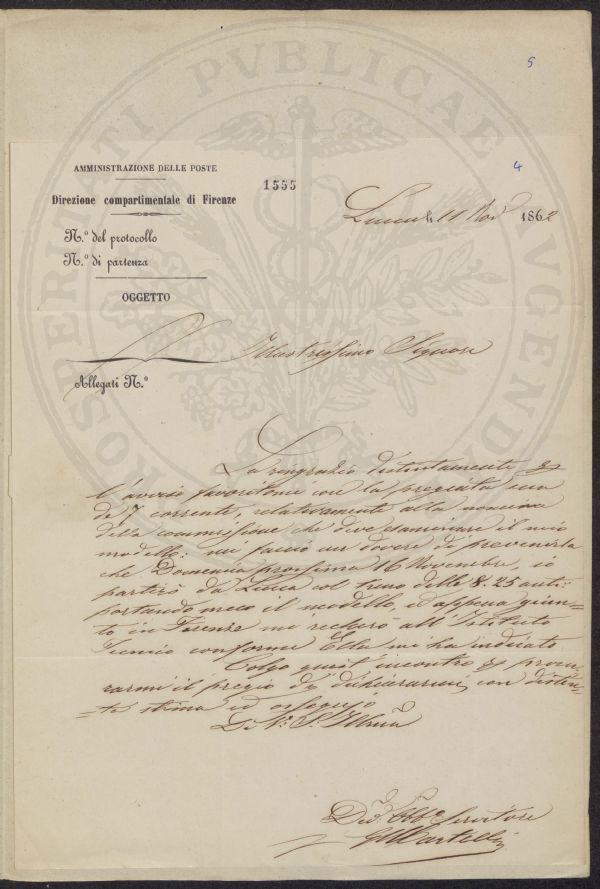 5
4
PROSPERITATI PVBLICAE AVGENDAE
AMMINISTRAZIONE DELLE POSTE
Direzione compartimentale di Firenze
1555
N.º del protocollo
N.º di partenza
OGGETTO
Allegati N.º
Lucca li 11 Nov 1862
Illustrissimo Signore
La ringrazio distintamente
l'avviso favoritomi con la pregiata sua
de 7 corrente, relativamente alla nomina
della commissione che deve esaminare il mio
modello: mi faccio un dovere di prevenirla
che Domenica prossima 16 Novembre, io
partirò da Lucca col treno delle 8.25 anti:
portando meco il modello, ed appena giun=
to in Firenze mi recherò all'Istituto
Tecnico conforme Ella mi ha indicato
Colgo quest'incontro procu=
rarmi il pregio di dichiararmi con distin=
=ta stima ed ossequio
Di V. S. Illma
Dev. Obb. Servitore
G Martelli